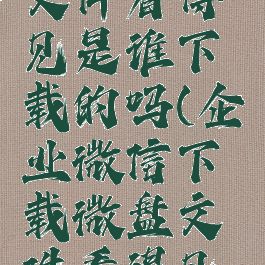 文件看得
见是谁下
载的吗(企
业微信下
载微盘文